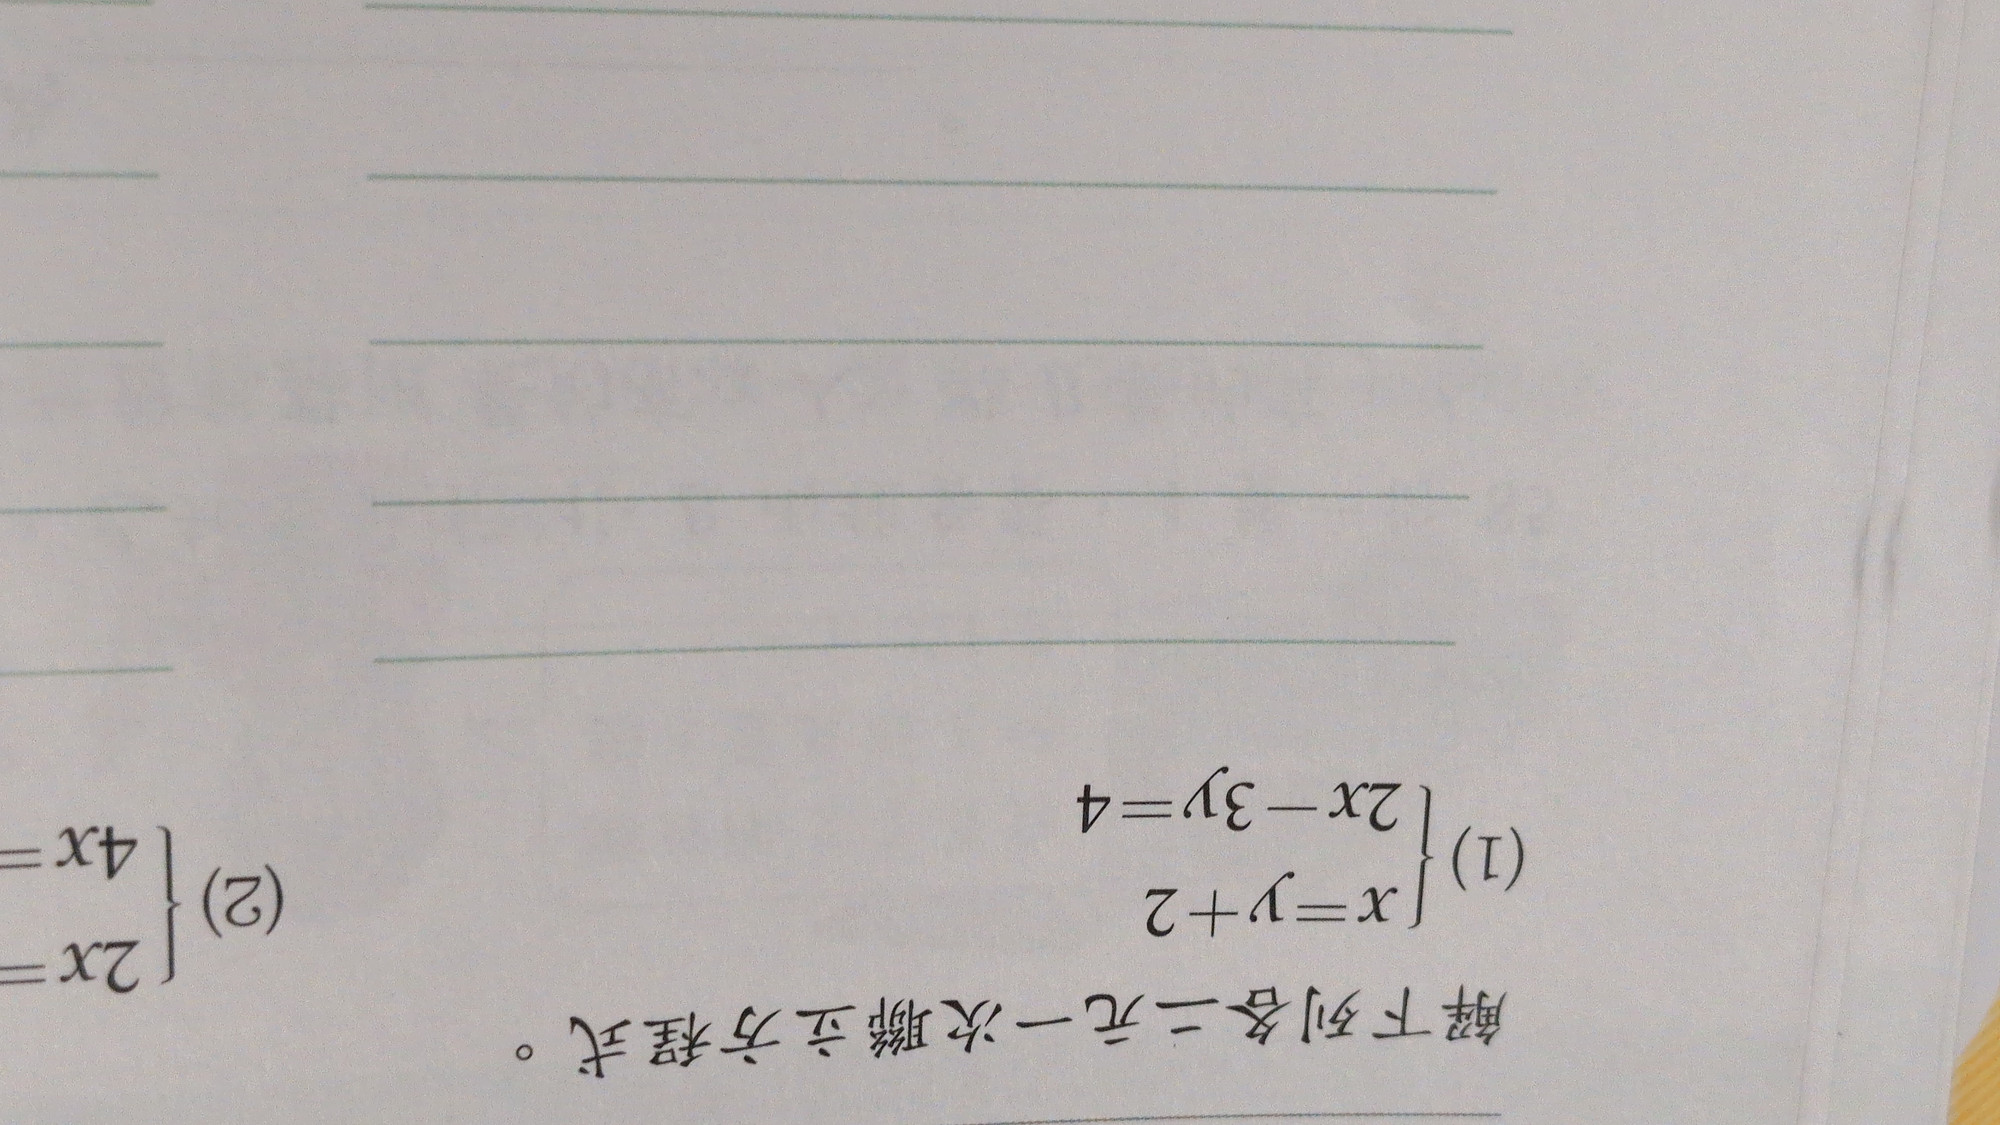 解下列各二元一次聯立方程式。
(1) x=y+2
2x-3y=4
(2) 2x=
4x=